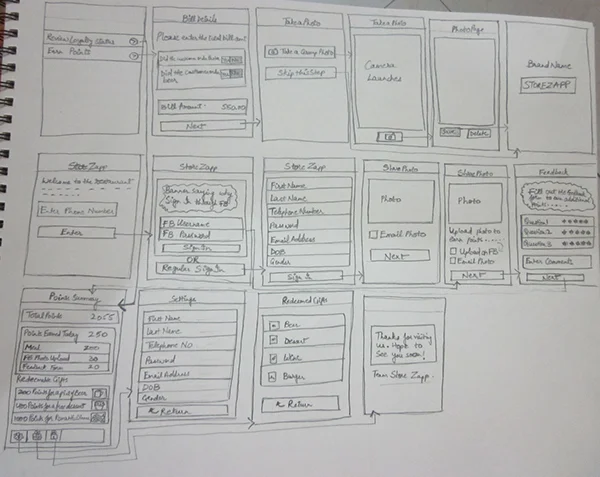 Review Loyalty Status
Earn Points
Bill Details
Please enter the total bill amt
Did the customer order
Did the customer order
beer
Bill Amount:
Next
Take a Photo
Take a Group Photo
Skip this Step
Take a Photo
Camera
Launches
Photo Page
Save
Delete
Brand Name
STOREZAPP
Store Zapp
Welcome to the restaurant
Enter Phone Number
Enter
Store Zapp
Banner saying why
Sign In through FB
FB Username
FB Password
Sign In
OR
Regular Sign In
Store Zapp
First Name
Last Name
Telephone Number
Password
Email Address
DOB
Gender
Sign In
Share Photo
Photo
Email Photo
Next
Share Photo
Photo
Upload photo to
earn points
Upload on FB
Email Photo
Next
Feedback
Fill out the feedback
form to earn additional
points
Question 1
Question 2
Question 3
Enter Comments
Next
Points Summary
Total Points 2055
Points Earned Today 250
Meal 200
FB Photo Upload 30
Feedback Form 20
Redeemable Gifts
Settings
First Name
Last Name
Telephone No
Password
Email Address
DOB
Gender
Return
Redeemed Gifts
Beer
Desert
Wine
Burger
Return
Thanks for visiting
us. Hope to
See you soon!
Team Store Zapp.